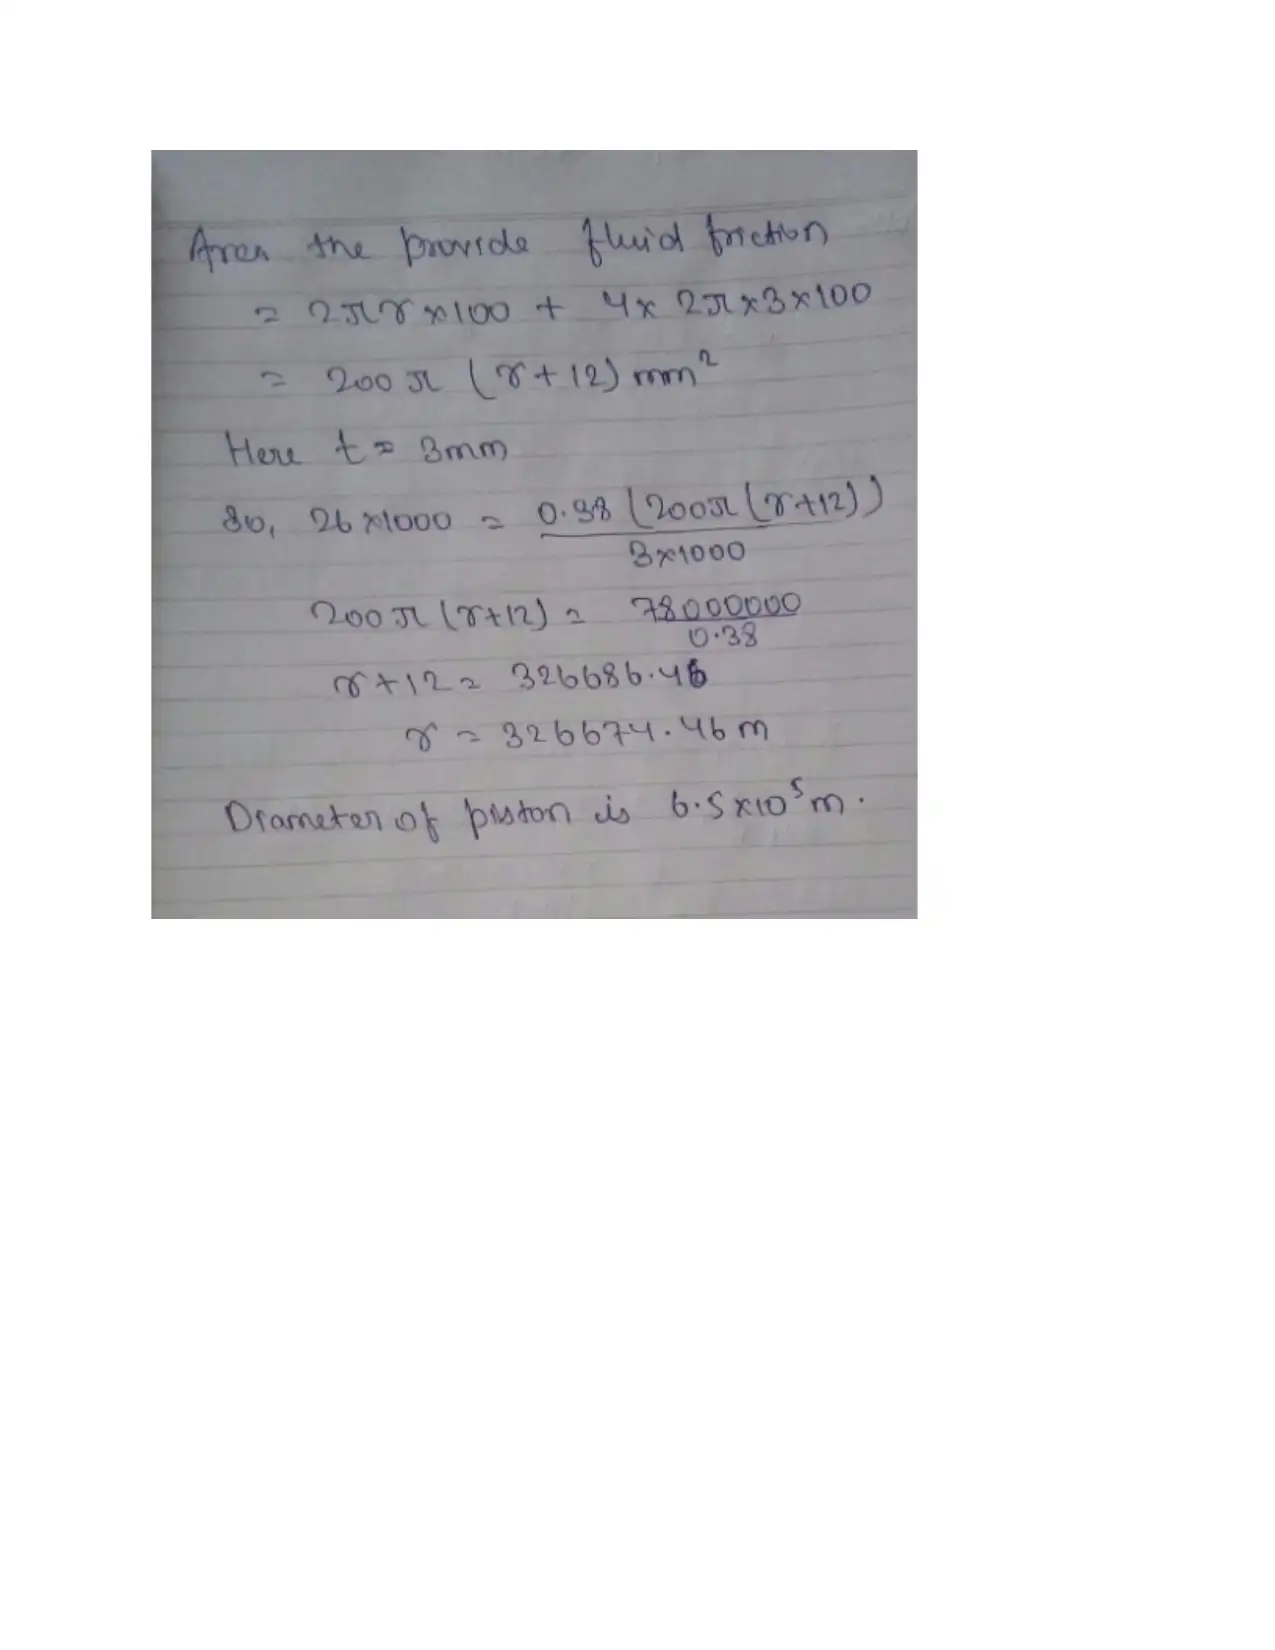 Area the provide fluid friction
= 2πr×100 + 4× 2π×3×100
= 200 π (r+12) mm²
Here t = 3mm
So, 26×1000 = 0.38 (200π(r+12))
3×1000
200 π (r+12) = 78000000
0.38
r+12 = 326686.46
r = 326674.46 m
Diameter of piston is 6.5×10⁵ m.